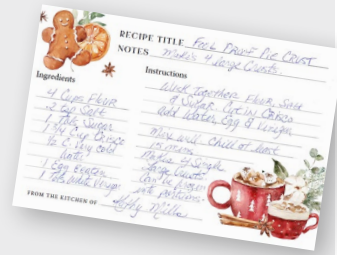 RECIPE TITLE Fool Proof Pie Crust
NOTES Makes 4 Large Crusts.
Ingredients
4 Cups Flour
2 tsp Salt
1 Tbls Sugar
1 3/4 Cup Crisco
1/2 C. Very cold
water
1 Egg Beaten
1 Tbls white Vinegar
Instructions
Together Flour, Salt
& Sugar. Cut in Crisco
add Water, Egg & Vinegar
Mix well. Chill at least
15 mins
Makes 4 Single
Large Crusts
Can be frozen
into portions.
FROM THE KITCHEN OF Mills